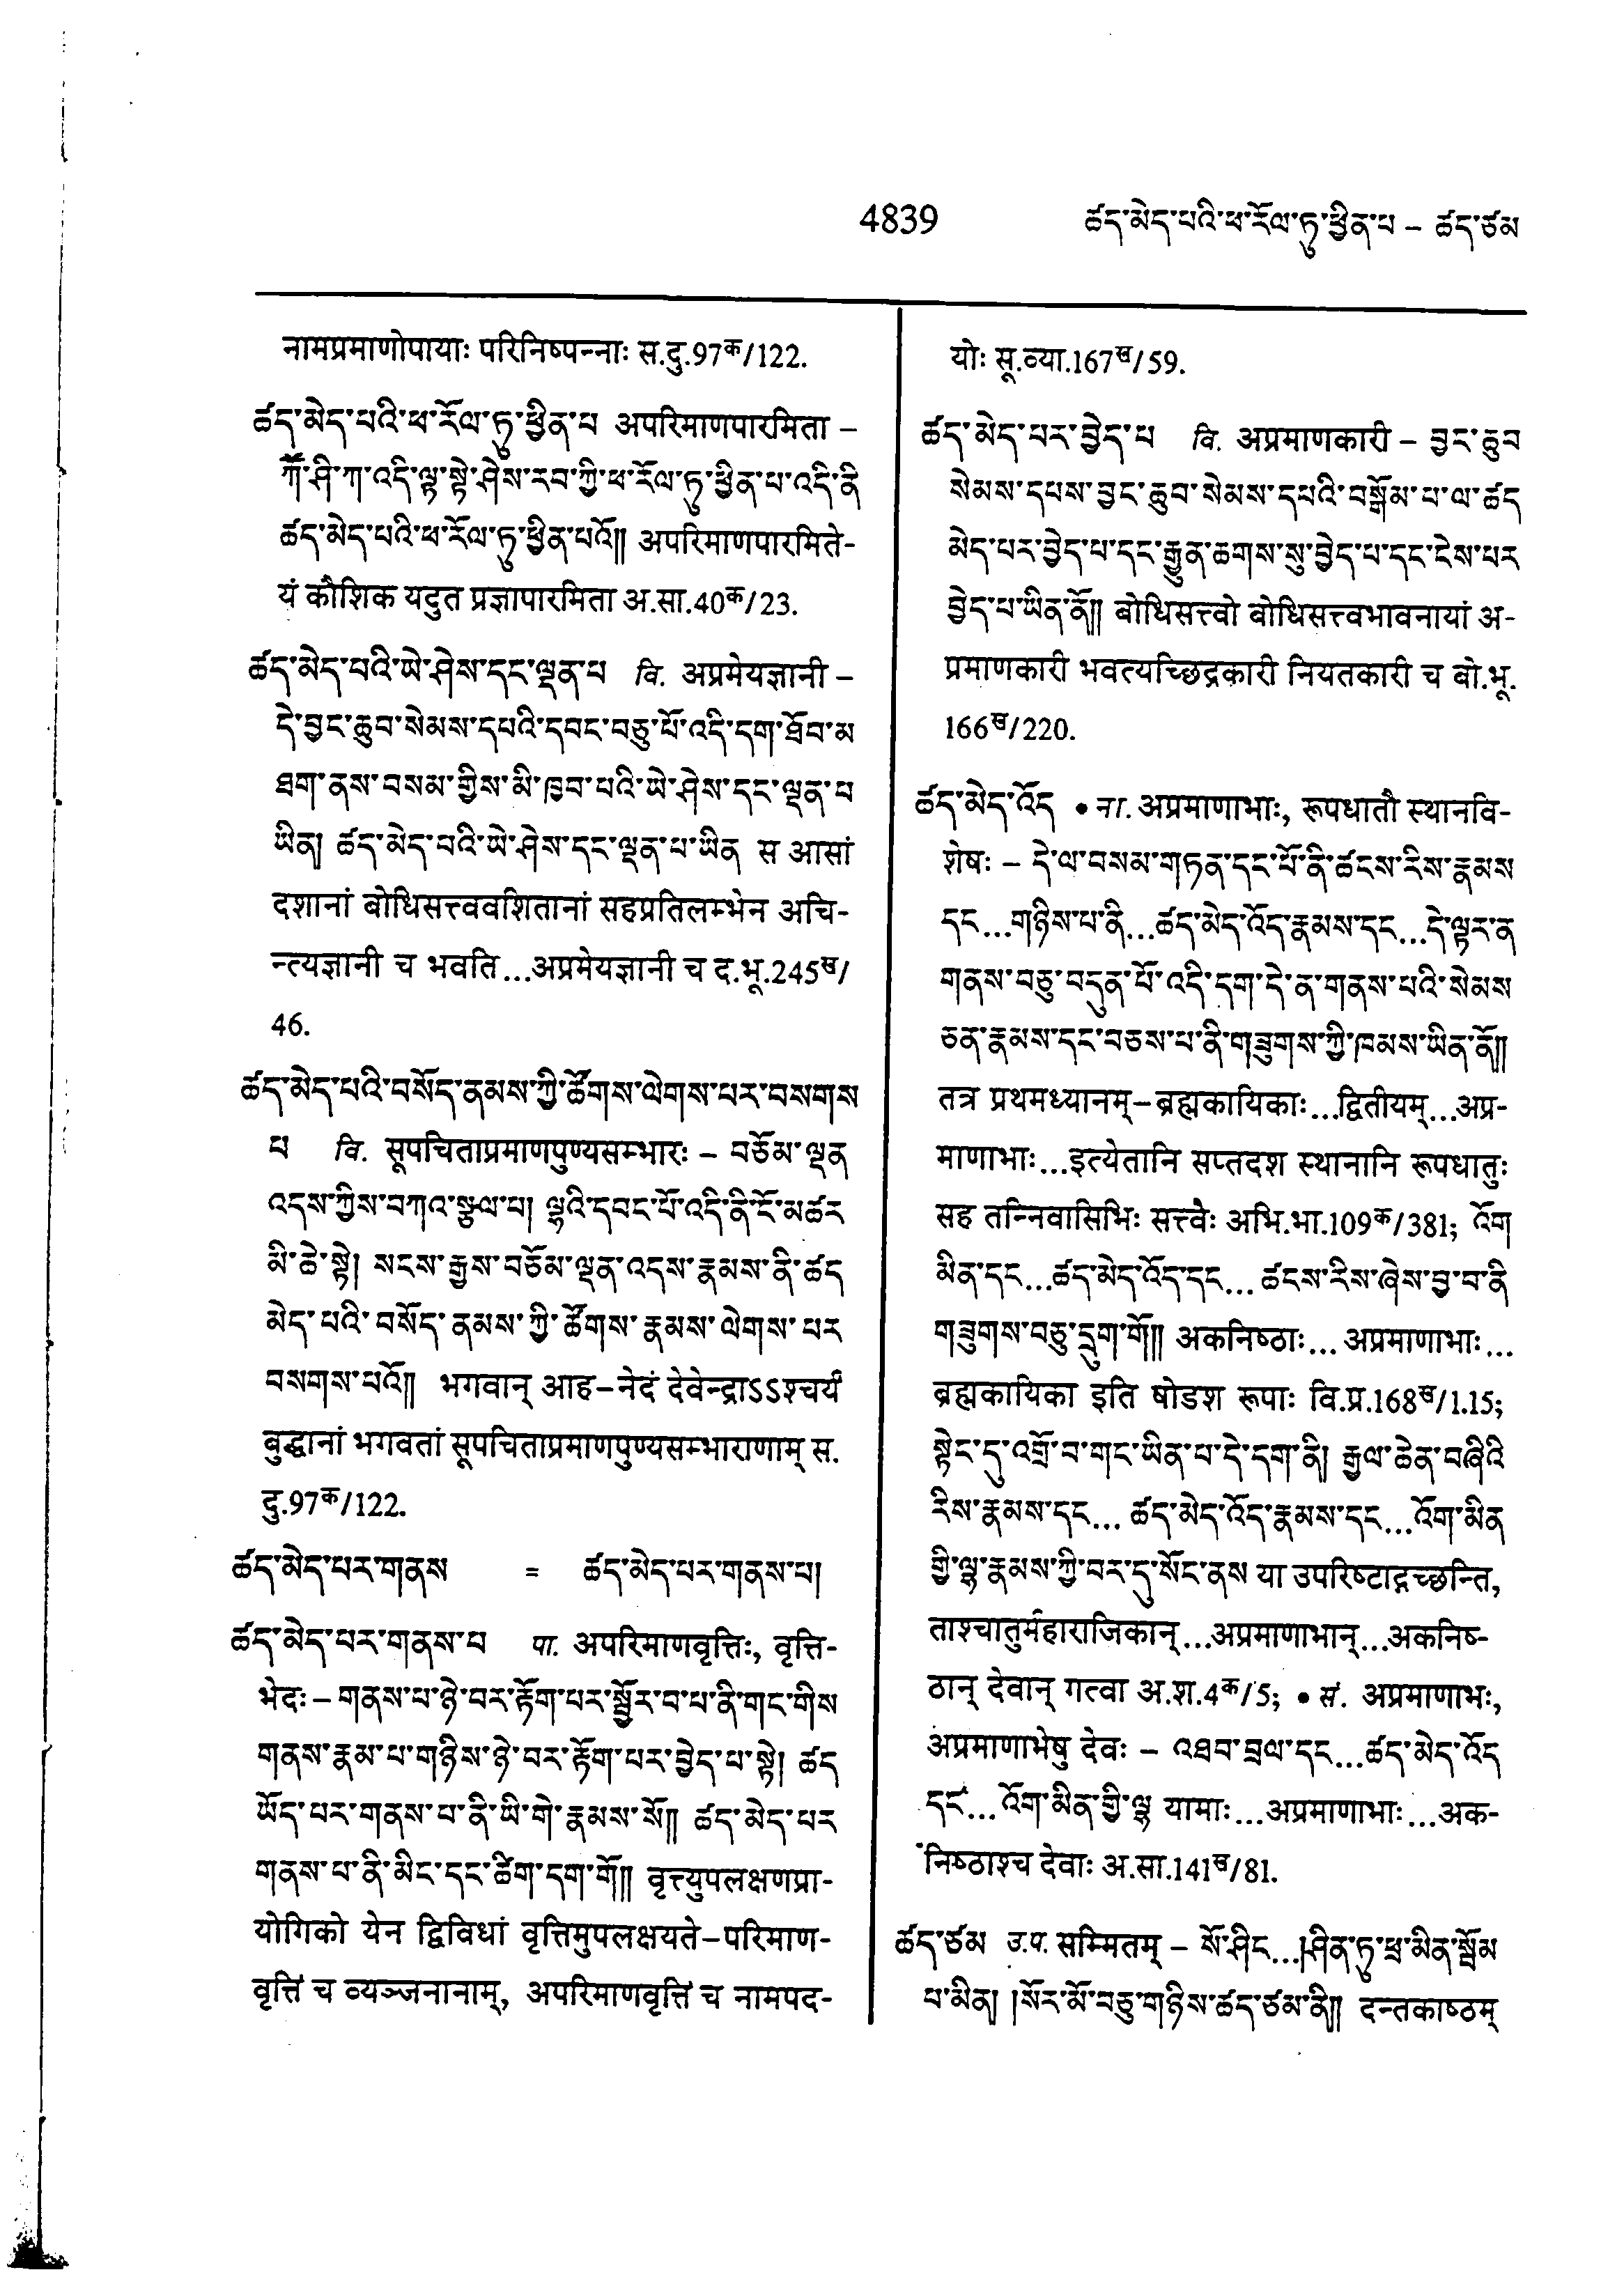 4839 ཚད་མེད་པའི་ཕ་རོལ་ཏུ་ཕྱིན་པ – ཚད་ཙམ
नामप्रमाणोपायाः परिनिष्पन्नाः स.दु.97क/122.
ཚད་མེད་པའི་ཕ་རོལ་ཏུ་ཕྱིན་པ अपरिमाणपारमिता –
ཀཽ་ཤི་ཀ་འདི་ལྟ་སྟེ་ཤེས་རབ་ཀྱི་ཕ་རོལ་ཏུ་ཕྱིན་པ་འདི་ནི
ཚད་མེད་པའི་ཕ་རོལ་ཏུ་ཕྱིན་པའོ།། अपरिमाणपारमिते-
यं कौशिक यदुत प्रज्ञापारमिता अ.सा.40क/23.
ཚད་མེད་པའི་ཡེ་ཤེས་དང་ལྡན་པ वि. अप्रमेयज्ञानी –
དེ་བྱང་ཆུབ་སེམས་དཔའི་དབང་བཅུ་པོ་འདི་དག་ཐོབ་མ
ཐག་ནས་བསམ་གྱིས་མི་ཁྱབ་པའི་ཡེ་ཤེས་དང་ལྡན་པ
ཡིན། ཚད་མེད་པའི་ཡེ་ཤེས་དང་ལྡན་པ་ཡིན स आसां
दशानां बोधिसत्त्ववशितानां सहप्रतिलम्भेन अचि-
न्त्यज्ञानी च भवति...अप्रमेयज्ञानी च द.भू.245ख/
46.
ཚད་མེད་པའི་བསོད་ནམས་ཀྱི་ཚོགས་ལེགས་པར་བསགས
པ वि. सूपचिताप्रमाणपुण्यसम्भारः – བཅོམ་ལྡན
འདས་ཀྱིས་བཀའ་སྩལ་པ། ལྷའི་དབང་པོ་འདི་ནི་ངོ་མཚར
མི་ཆེ་སྟེ། སངས་རྒྱས་བཅོམ་ལྡན་འདས་རྣམས་ནི་ཚད
མེད་པའི་བསོད་ནམས་ཀྱི་ཚོགས་རྣམས་ལེགས་པར
བསགས་པའོ།། भगवान् आह–नेदं देवेन्द्राऽऽश्चर्यं
बुद्धानां भगवतां सूपचिताप्रमाणपुण्यसम्भाराणाम् स.
दु.97क/122.
ཚད་མེད་པར་གནས = ཚད་མེད་པར་གནས་པ།
ཚད་མེད་པར་གནས་པ पा. अपरिमाणवृत्तिः, वृत्ति-
भेदः – གནས་པ་ཉེ་བར་རྟོག་པར་སྦྱོར་བ་པ་ནི་གང་གིས
གནས་རྣམ་པ་གཉིས་ཉེ་བར་རྟོག་པར་བྱེད་པ་སྟེ། ཚད
ཡོད་པར་གནས་པ་ནི་ཡི་གེ་རྣམས་སོ།། ཚད་མེད་པར
གནས་པ་ནི་མིང་དང་ཚིག་དག་གོ།། वृत्त्युपलक्षणप्रा-
योगिको येन द्विविधां वृत्तिमुपलक्षयते–परिमाण-
वृत्तिं च व्यञ्जनानाम्, अपरिमाणवृत्तिं च नामपद-
योः सू.व्या.167ख/59.
ཚད་མེད་པར་བྱེད་པ वि. अप्रमाणकारी – བྱང་ཆུབ
སེམས་དཔས་བྱང་ཆུབ་སེམས་དཔའི་བསྒོམ་པ་ལ་ཚད
མེད་པར་བྱེད་པ་དང་རྒྱུན་ཆགས་སུ་བྱེད་པ་དང་ངེས་པར
བྱེད་པ་ཡིན་ནོ།། बोधिसत्त्वो बोधिसत्त्वभावनायां अ-
प्रमाणकारी भवत्यच्छिद्रकारी नियतकारी च बो.भू.
166ख/220.
ཚད་མེད་འོད • ना. अप्रमाणाभाः, रूपधातौ स्थानवि-
शेषः – དེ་ལ་བསམ་གཏན་དང་པོ་ནི་ཚངས་རིས་རྣམས
དང...གཉིས་པ་ནི...ཚད་མེད་འོད་རྣམས་དང...དེ་ལྟར་ན
གནས་བཅུ་བདུན་པོ་འདི་དག་དེ་ན་གནས་པའི་སེམས
ཅན་རྣམས་དང་བཅས་པ་ནི་གཟུགས་ཀྱི་ཁམས་ཡིན་ནོ།།
तत्र प्रथमध्यानम्–ब्रह्मकायिकाः...द्वितीयम्...अप्र-
माणाभाः...इत्येतानि सप्तदश स्थानानि रूपधातुः
सह तन्निवासिभिः सत्त्वैः अभि.भा.109क/381; འོག
མིན་དང...ཚད་མེད་འོད་དང... ཚངས་རིས་ཞེས་བྱ་བ་ནི
གཟུགས་བཅུ་དྲུག་གོ།། अकनिष्ठाः... अप्रमाणाभाः...
ब्रह्मकायिका इति षोडश रूपाः वि.प्र.168ख/1.15;
སྟེང་དུ་འགྲོ་བ་གང་ཡིན་པ་དེ་དག་ནི། རྒྱལ་ཆེན་བཞིའི
རིས་རྣམས་དང... ཚད་མེད་འོད་རྣམས་དང...འོག་མིན
གྱི་ལྷ་རྣམས་ཀྱི་བར་དུ་སོང་ནས या उपरिष्टाद्गच्छन्ति,
ताश्चातुर्महाराजिकान्...अप्रमाणाभान्...अकनिष-
ठान् देवान् गत्वा अ.श.4क/5; • सं. अप्रमाणाभः,
अप्रमाणाभेषु देवः – འཐབ་བྲལ་དང...ཚད་མེད་འོད
དང... འོག་མིན་གྱི་ལྷ यामाः...अप्रमाणाभाः...अक-
निष्ठाश्च देवाः अ.सा.141ख/81.
ཚད་ཙམ उ.प. सम्मितम् – སོ་ཤིང...།ཤིན་ཏུ་ཕྲ་མིན་སྦོམ
པ་མིན། །སོར་མོ་བཅུ་གཉིས་ཚད་ཙམ་ནི།། दन्तकाष्ठम्